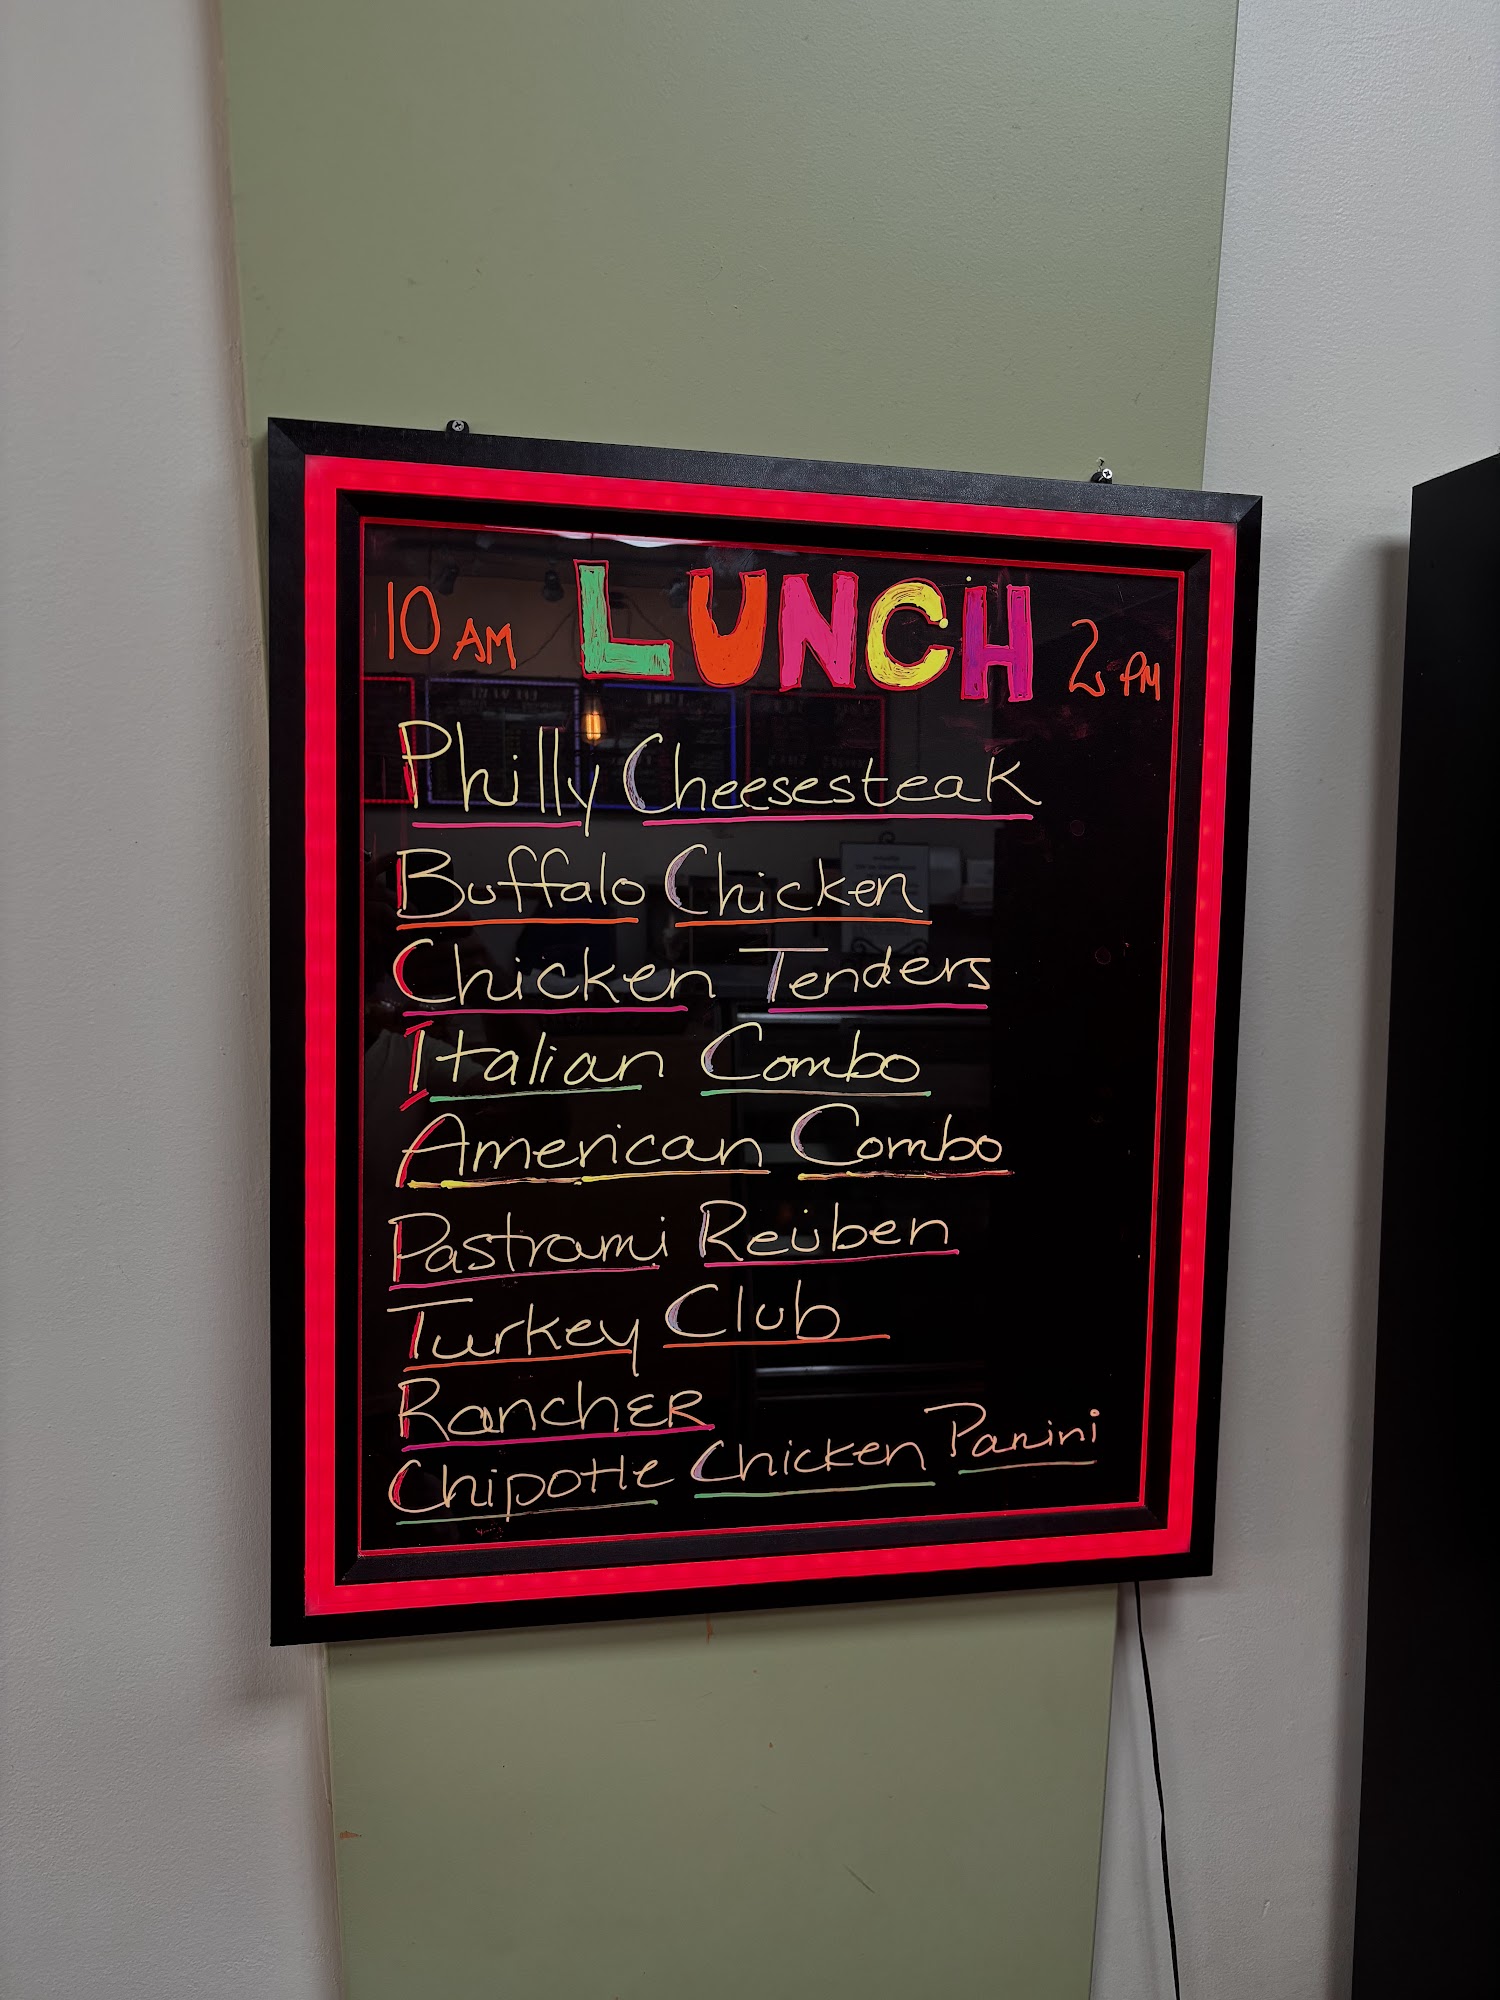 10 AM LUNCH 2 PM
Philly Cheesesteak
Buffalo Chicken
Chicken Tenders
Italian Combo
American Combo
Pastrami Reuben
Turkey Club
RanchER
Chipotle Chicken Panini